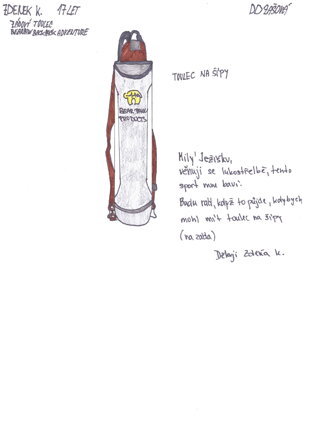 ZDENEK K. 17 LET
ZÁDOVÝ TOULEC
BEARBOW BACKPACK ADVENTURE
TOULEC NA ŠÍPY
BEAR PAW
PRODUCTS
Milý Ježíšku,
věnuji se lukostřelbě, tento
sport mne baví.
Budu rád, když to půjde, kdybych
mohl mít toulec na šípy
(na záda)
Děkuji Zdeněk K.